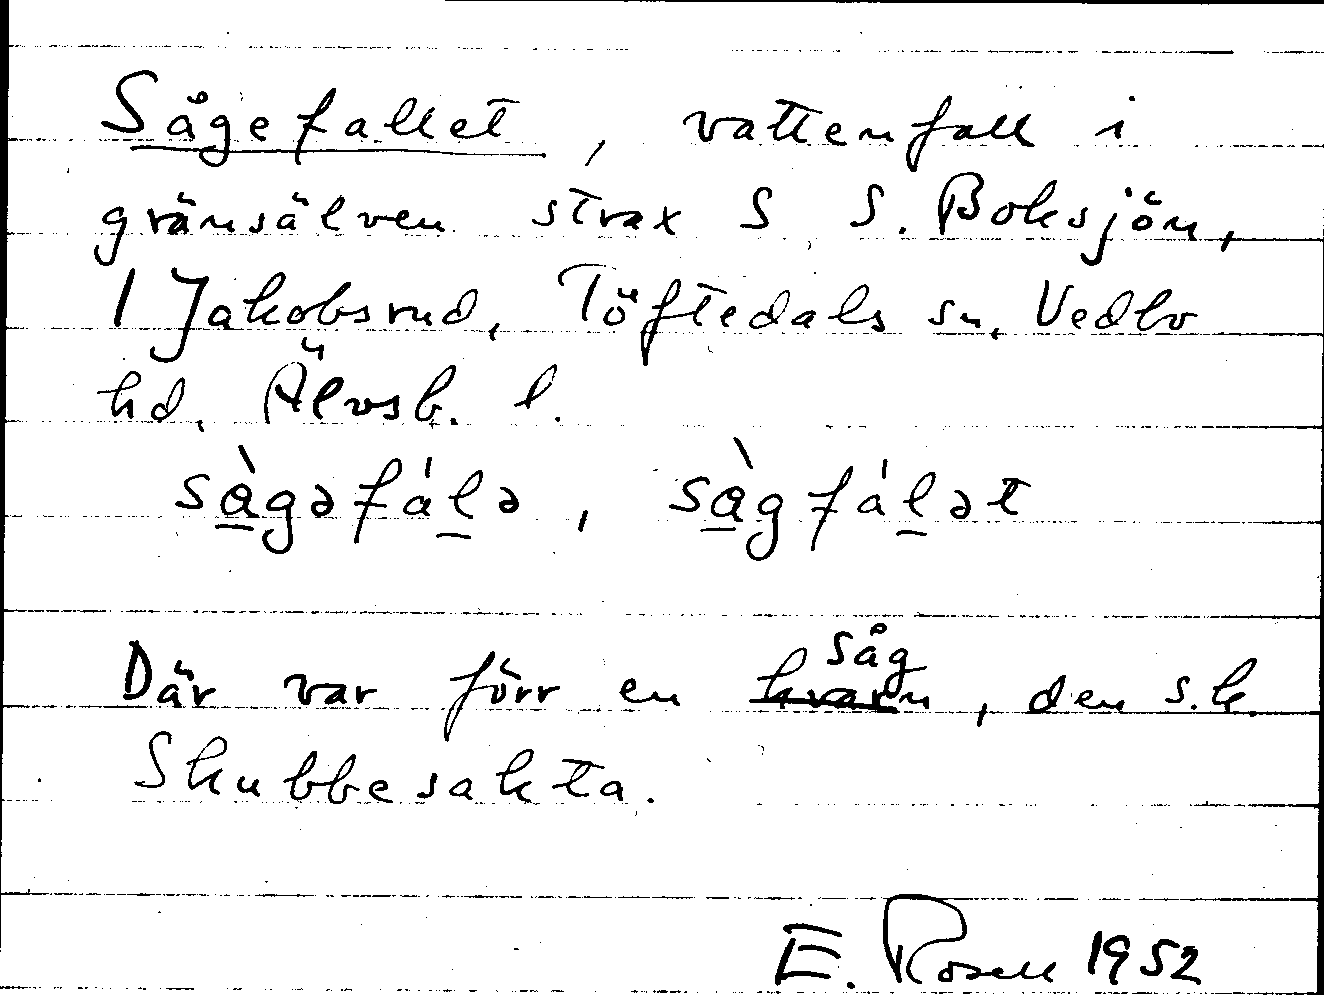 Sågefallet, vattenfall i
gränsälven strax S S. Boksjön,
1 Jakobsrud, Töftedals sn, Vedbo
hd, Älvsb. l.
sàgəfálə, sàgfálət
Där var förr en kvarn såg, den s.k.
Skubbesakta.
E. Rosell 1952